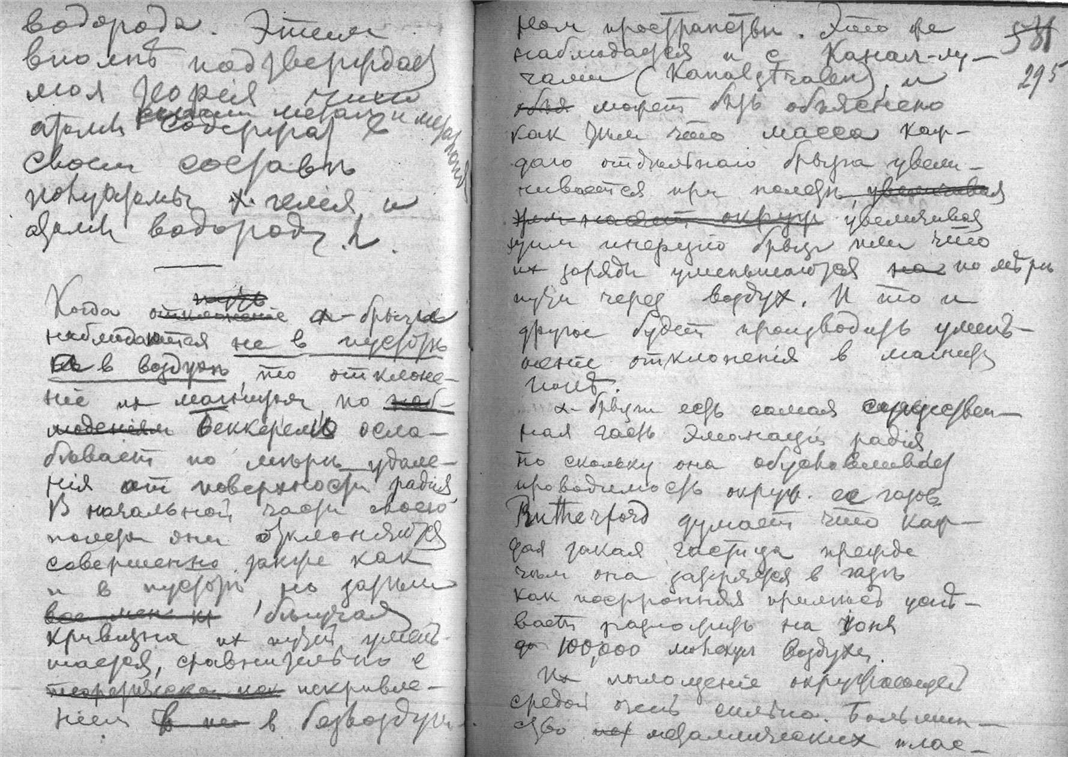 водорода. Этим
вполнѣ подтверждает
моя теорія
атомы содержат в
металл и металлоид
своем составѣ
полуатомы х гелія и
атомы водорода h.
Когда α-брызги
наблюдаются не в пустотѣ
а в воздухѣ, то отклоне-
ніе их магнитом по
Беккерелю осла-
бѣвает по мѣрѣ удале-
нія от поверхности радія.
В начальной части своего
полета они отклоняются
совершенно также как
и в пустотѣ но затѣм
кривизна их пути умень-
шается, сравнительно с
искривле-
ніем в безвоздуш-
ном пространствѣ. Это же
наблюдается и с Канал-лу-
чами (Kanalstralen) и
может быть объяснено
как тѣм что масса каж-
даго отдѣльнаго брызга увели-
чивается при полетѣ
увеличивая
инерцію брызг или что
их заряды уменьшаются по мѣрѣ
пути через воздух. И то и
другое будет производить умень-
шеніе отклоненія в магнит.
полѣ.
α-брызги есть самая существен-
ная часть эманаціи радія
по скольку она обусловливает
проводимость окруж. ее газов
Rutherford думает что каж-
дая такая частица прежде
чѣм она задержится в газѣ
как посторонняя примѣсь успѣ-
вает разложить на іоны
до 100,000 молекул воздуха.
Их поглощеніе окружающей
средой очень сильно. Большин-
ство металлических плас-
581
295